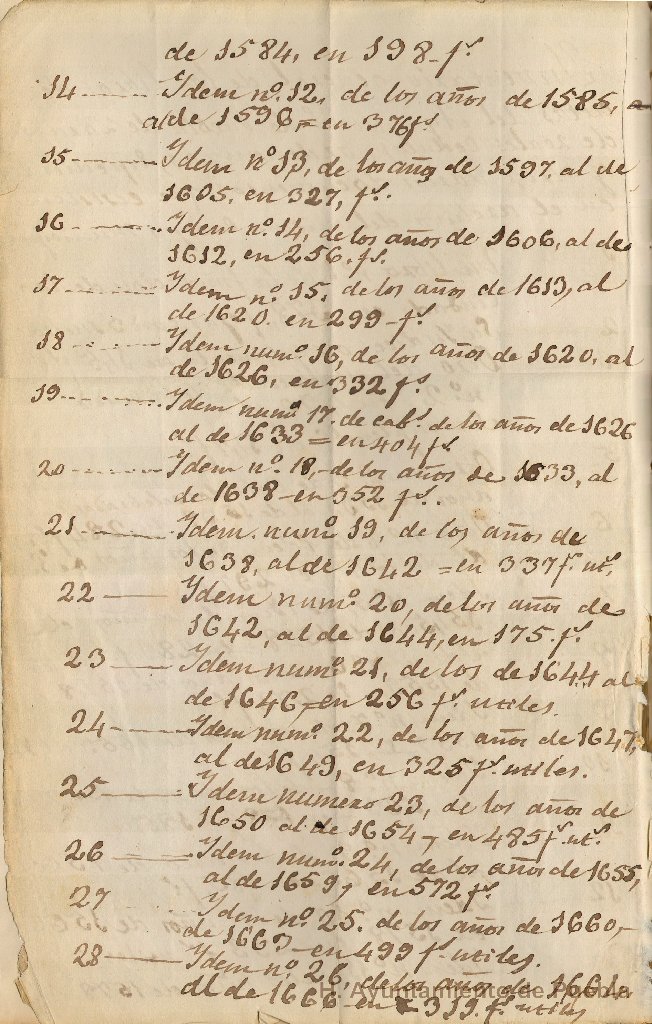 de 1584, en 198 fs.
14 Ydem nº. 12, de los años de 1585, a
al de 1596 = en 376 fs
15 Ydem nº 13, de los años de 1597. al de
1605. en 327, fs.
16 Ydem nº. 14, de los años de 1606, al de
1612, en 256. fs.
17 Ydem nº. 15. de los años de 1613, al
de 1620. en 299 fs.
18 Ydem numº. 16, de los años de 1620, al
de 1626, en 332 fs.
19 Ydem numº. 17. de cabs. de los años de 1626
al de 1633 = en 404 fs.
20 Ydem nº. 18, de los años de 1633, al
de 1638 - en 352 fs.
21 Ydem. numº 19, de los años de
1638, al de 1642 = en 337 fs. uts.
22 Ydem numº. 20, de los años de
1642, al de 1644, en 175. fs.
23 Ydem numº. 21, de los de 1644 al
de 1646, en 256 fs. utiles.
24 Ydem numº. 22, de los años de 1647,
al de 1649, en 325 fs. utiles.
25 Ydem numero 23, de los años de
1650 al de 1654, en 485 fs. uts.
26 Ydem numº. 24, de los años de 1655,
al de 1659, en 572 fs.
27 Ydem nº. 25. de los años de 1660,
de 1663 - en 499 fs. utiles.
28 Ydem nº. 26, de los años de 1664
al de 1666 en 319 fs. utiles
H. Ayuntamiento de Puebla